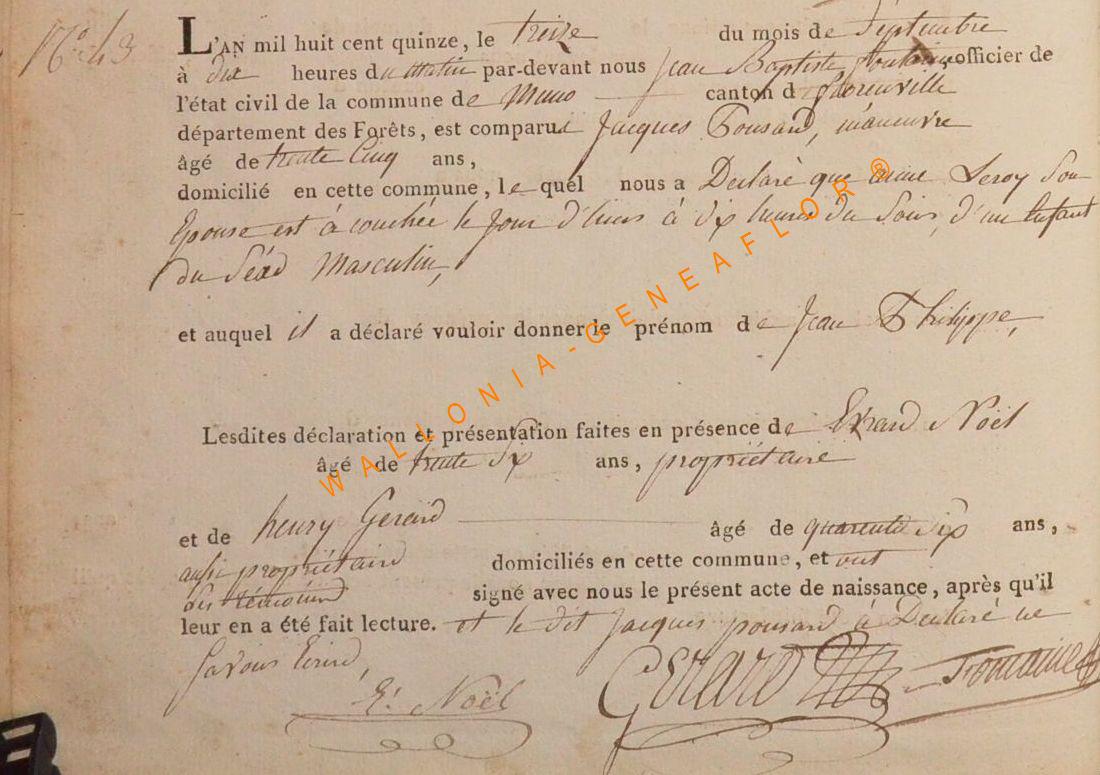 N.° 43
L'AN mil huit cent quinze, le treize du mois de Septembre
à dix heures du matin par-devant nous Jean Baptiste fontaine officier de
l'état civil de la commune de Muno canton d florenville
département des Forêts, est comparut Jacques Pousard, manœuvre
âgé de trente Cinq ans,
domicilié en cette commune, le quel nous a Declaré que anne Leroy Son
Epouse est à couchée le Jour d'hiers à dix heures du Soir, d'un Enfant
du Séxe Masculin,
et auquel il a déclaré vouloir donner le prénom de Jean Philippe,
Lesdites déclaration et présentation faites en présence de Evrard Noël
âgé de trente Six ans, propriétaire
et de henry Gerard âgé de quarente Six ans,
aussi propriétaire domiciliés en cette commune, et ont
signé avec nous le présent acte de naissance, après qu'il
leur en a été fait lecture. et le dit Jacques pousard à Declaré ne
Savoir Ecrire,
E. Noël GERARD fontaine
WALLONIA-GENEAFLOR®